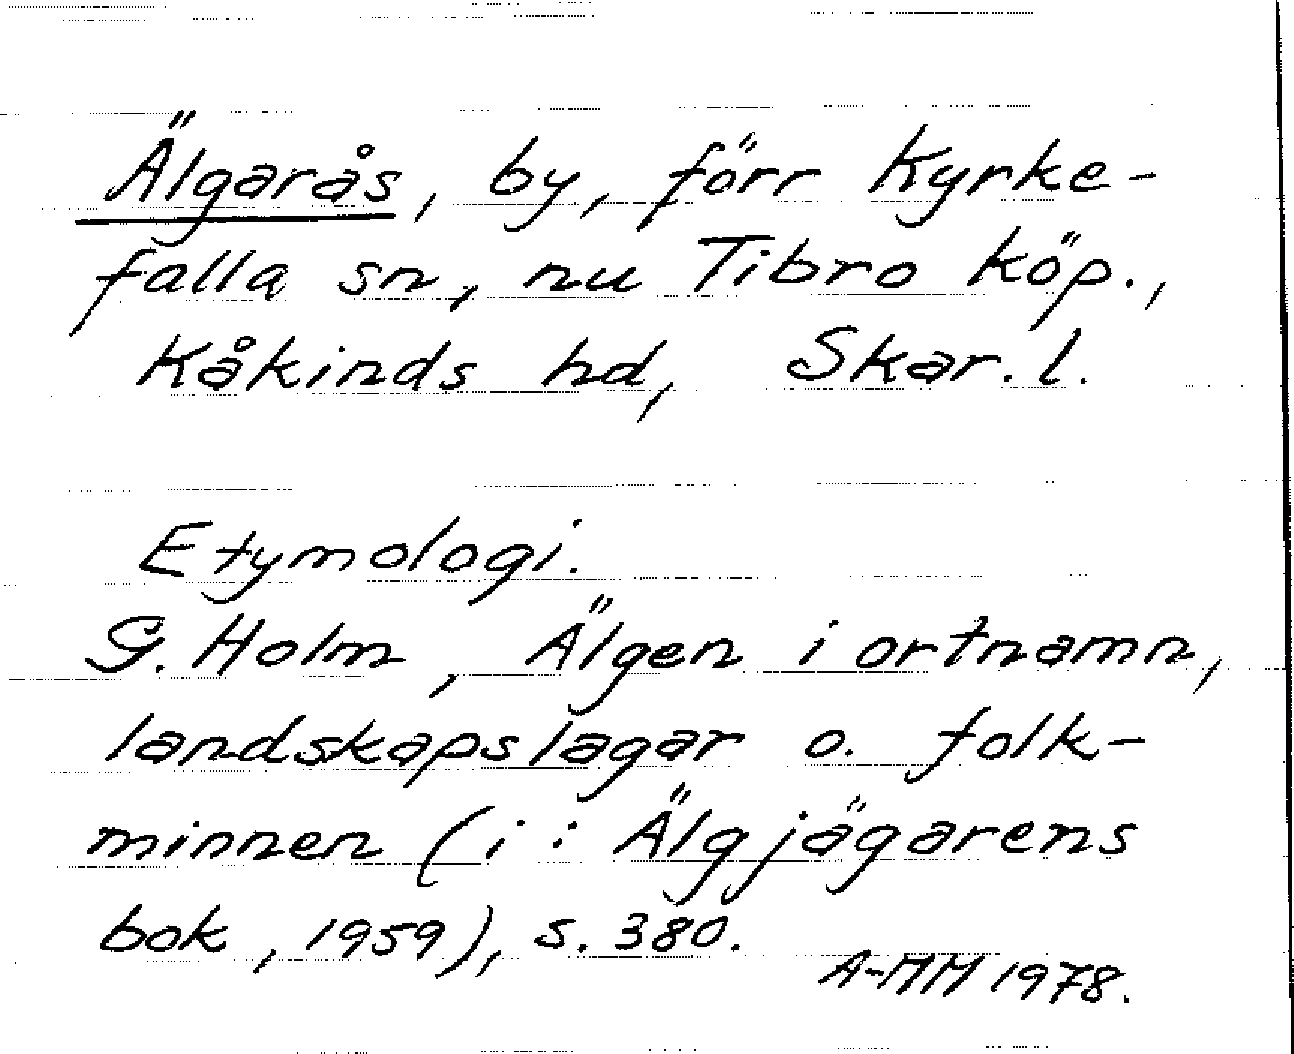 Älgarås, by, förr Kyrke-
falla sn, nu Tibro köp.,
Kåkinds hd, Skar. l.
Etymologi.
G. Holm, Älgen i ortnamn,
landskapslagar o. folk-
minnen (i: Älgjägarens
bok, 1959), s. 380.
A-MM 1978.